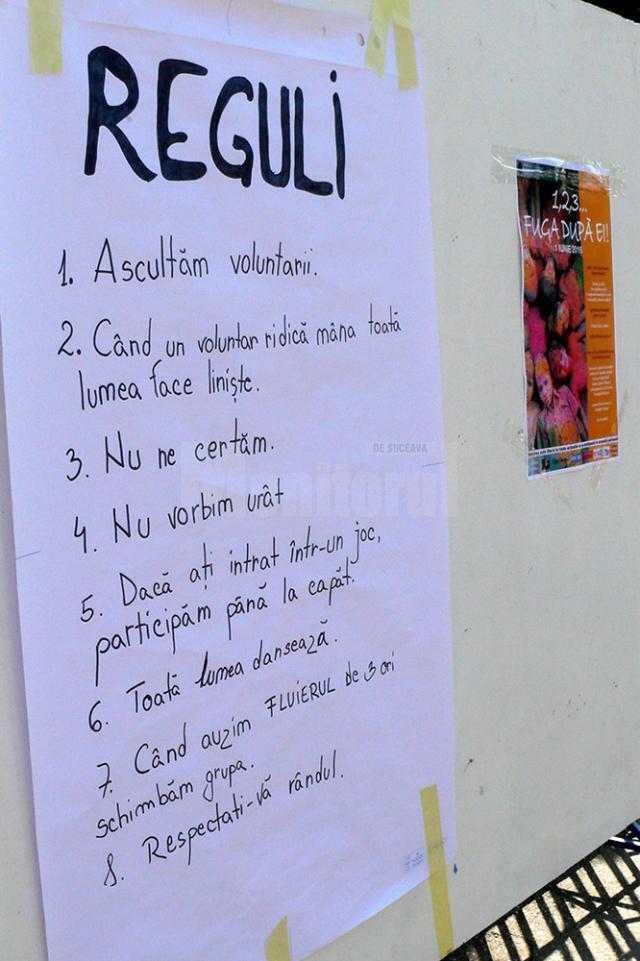 REGULI
1. Ascultăm voluntarii.
2. Când un voluntar ridică mâna toată
lumea face liniște.
3. Nu ne certăm.
4. Nu vorbim urât
5. Dacă ați intrat într-un joc,
participăm până la capăt.
6. Toată lumea dansează.
7. Când auzim FLUIERUL de 3 ori
schimbăm grupa.
8. Respectați-vă rândul.
1,2,3...
FUGA DUPĂ EI!
1 IUNIE 2015
Monitorul
DE SUCEAVA